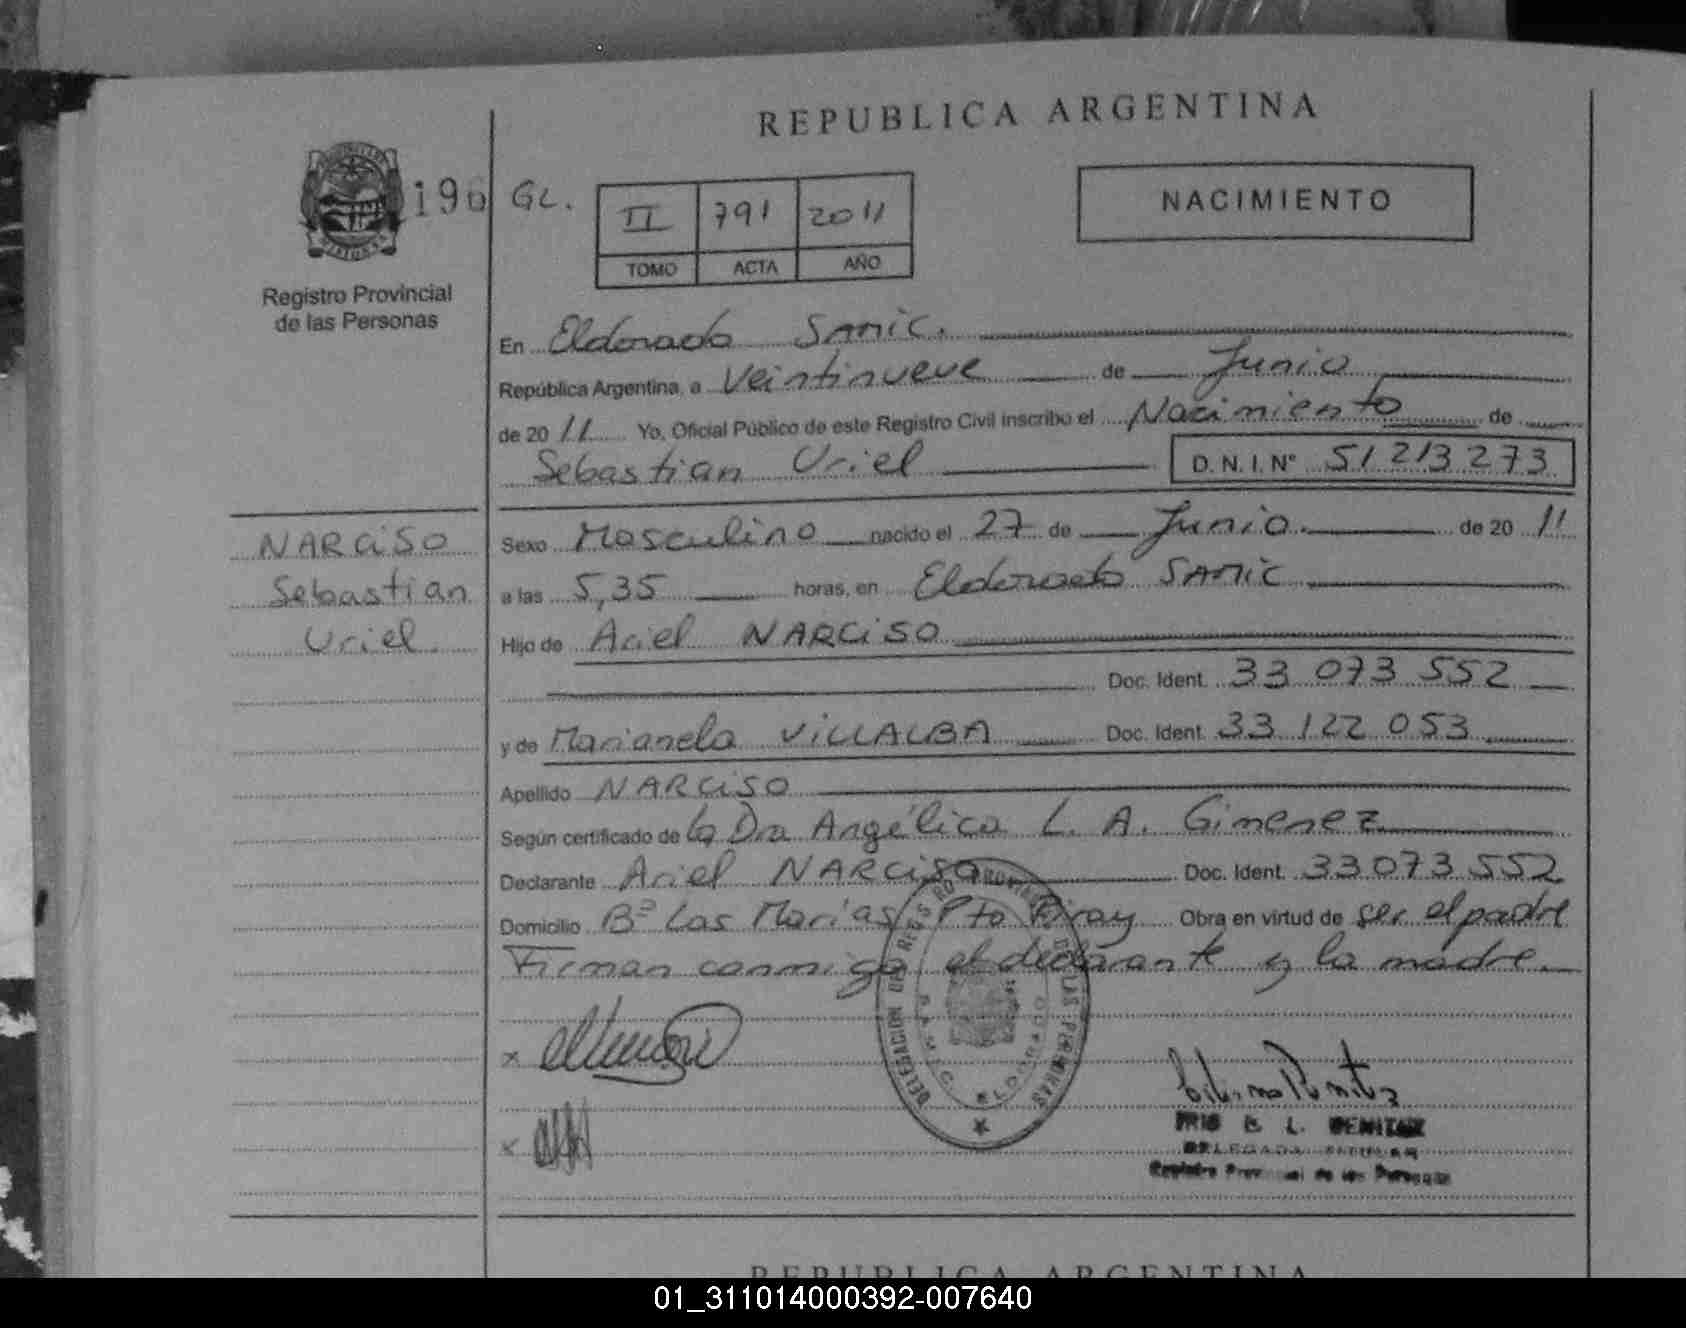 REPUBLICA ARGENTINA
196 GL.
II 791 2011
TOMO ACTA AÑO
NACIMIENTO
Registro Provincial
de las Personas
En Eldorado SAMIC.
República Argentina, a Veintinueve de Junio
de 2011 Yo, Oficial Público de este Registro Civil inscribo el Nacimiento de
Sebastian Uriel D.N.I. Nº 51 213 273
NARCISO
Sebastian
Uriel.
Sexo Masculino nacido el 27 de Junio. de 2011
a las 5,35 horas, en Eldorado SAMIC
Hijo de Ariel NARCISO
Doc. Ident. 33 073 552
y de Marianela VILLALBA Doc. Ident. 33 122 053
Apellido NARCISO
Según certificado de la Dra Angélica L. A. Gimenez
Declarante Ariel NARCISO Doc. Ident. 33 073 552
Domicilio Bº Las Marías Pto Piray Obra en virtud de ser el padre
Firman conmigo el declarante y la madre.
DELEGACION DEL REGISTRO PROVINCIAL DE LAS PERSONAS
SAMIC ELDORADO
x
x
B. L. BENITEZ
DELEGADA
Registro Provincial de las Personas
REPUBLICA ARGENTINA
01_311014000392-007640